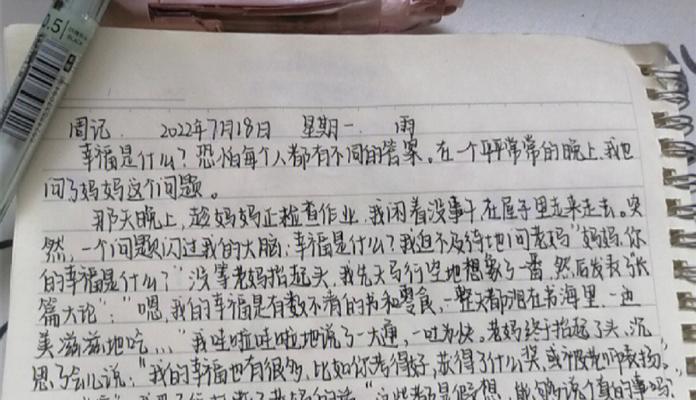 0.5
周记 2022年7月18日 星期一 雨
幸福是什么？恐怕每个人都有不同的答案。在一个平平常常的晚上，我也
问了妈妈这个问题。
那天晚上，趁妈妈正检查作业，我闲着没事干，在屋子里走来走去。突
然，一个问题闪过我的大脑：幸福是什么？我迫不及待地问老妈"妈妈，你
的幸福是什么？"没等老妈抬起头，我先天马行空地想象了一番，然后发表了长
篇大论："嗯，我的幸福是有数不清的书和零食，一整天都泡在书海里，一边
美滋滋地吃…"我哇啦哇啦地说了一大通，一吐为快。老妈终于抬起了头，沉
思了会儿说："我的幸福也有很多，比如你考得好，获得了什么奖，或被老师表扬。"
老妈的话"这些都是假想，能够说个真的事吗，